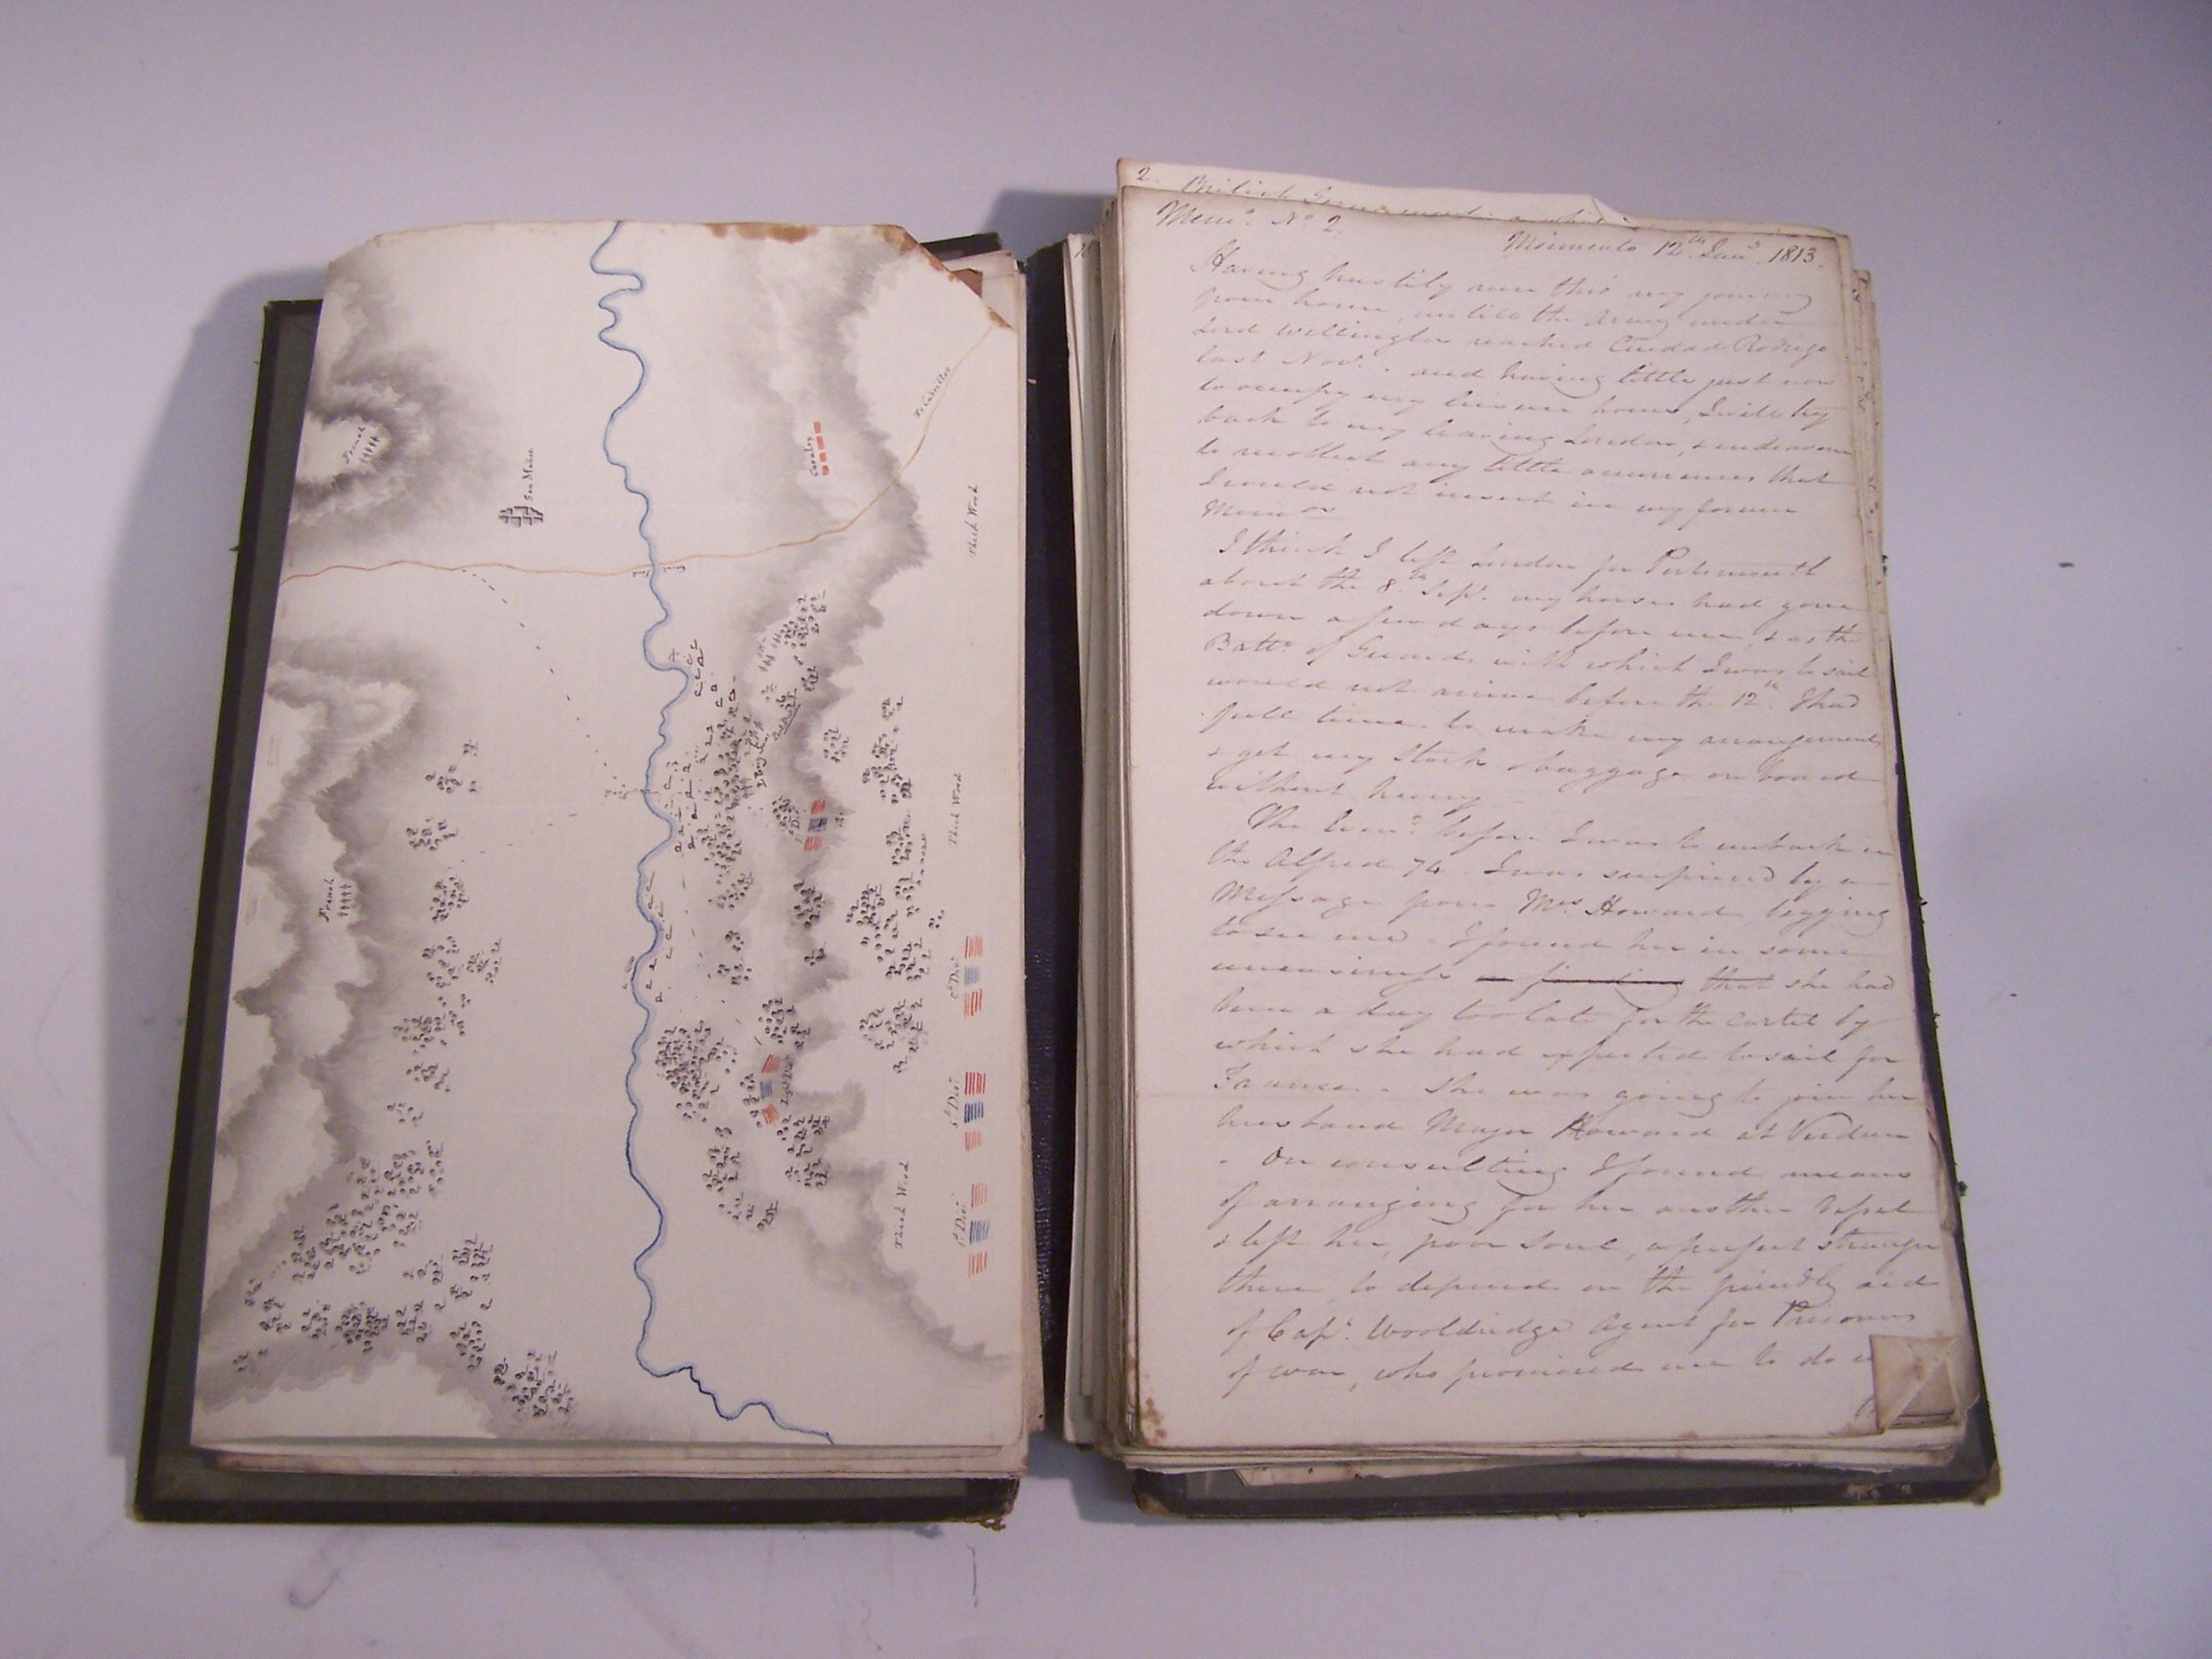 French
San Muñoz
Cavalry
Thick Wood
French
Thick Wood
6th Divn
5th Divn
Light Divn
Thick Wood
1st Divn
2. British
Memo. No. 2.
Moimento 12th Jany. 1813.
Having hastily run thro' my journey
from home, until the Army under
Lord Wellington reached Ciudad Rodrigo
last Novr. and having little just now
to occupy my leisure hours, I will try
back to my leaving London, & endeavour
to recollect any little occurrences that
I could not insert in my former
Memos
I think I left London for Portsmouth
about the 8th Sepr. my horses had gone
down a few days before me, & as the
Battn. of Guards with which I was to sail
would not arrive before the 12th I had
full time to make my arrangements
& get my Stock & baggage on board
without hurry
The Eveng. before I was to embark in
the Alfred 74 - I was surprised by a
Message from Mrs Howard, begging
to see me - I found her in some
uneasiness on finding that she had
been a day too late for the Cartel by
which she had expected to sail for
France - She was going to join her
husband Major Howard at Verdun
- On consulting I found means
of arranging for her another Vessel
& left her, poor Soul, a perfect stranger
there, to depend on the friendly aid
of Capt. Wooldridge Agent for Prisoners
of war, who promised me to do